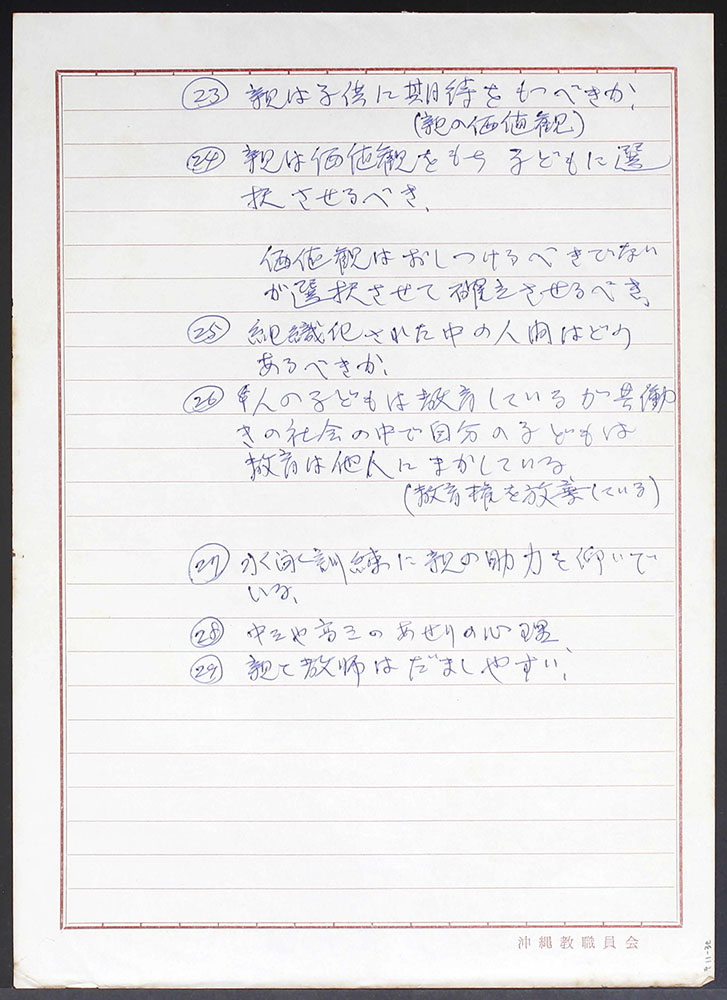 ㉓ 親は子供に期待をもつべきか、
(親の価値観)
㉔ 親は価値観をもち 子どもに選
択させるべき、
価値観はおしつけるべきでない
が選択させて確立させるべき、
㉕ 組織化された中の人間はどう
あるべきか、
㉖ 人の子どもは教育しているが共働
きの社会の中で自分の子どもは
教育は他人にまかしている、
(教育権を放棄している)
㉗ 水泳訓練に親の助力を仰いで
いる、
㉘ 中三や高三のあせりの心理、
㉙ 親と教師はだましやすい、
沖縄教職員会